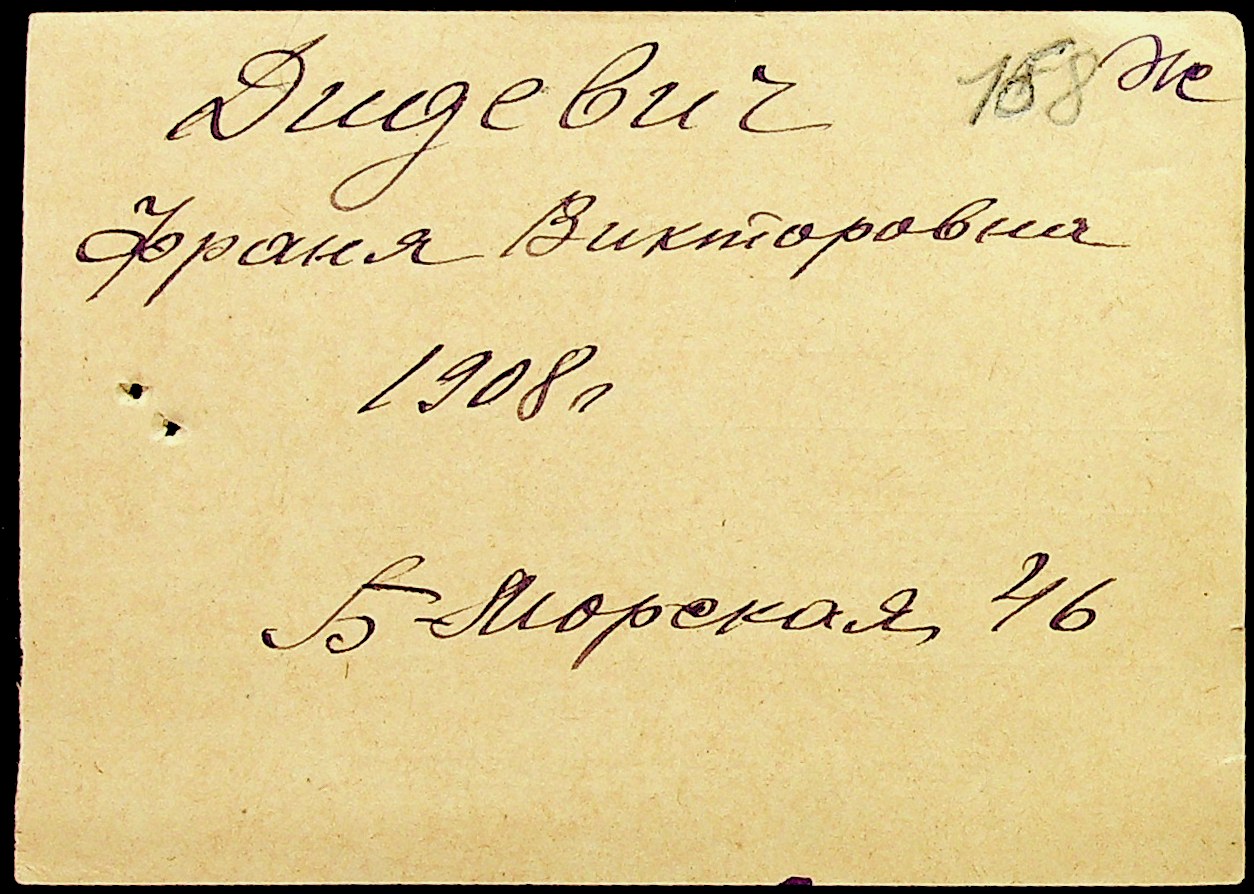 Дидевич 158 Ж
Франя Викторовна
1908 г
Б-Морская, 46